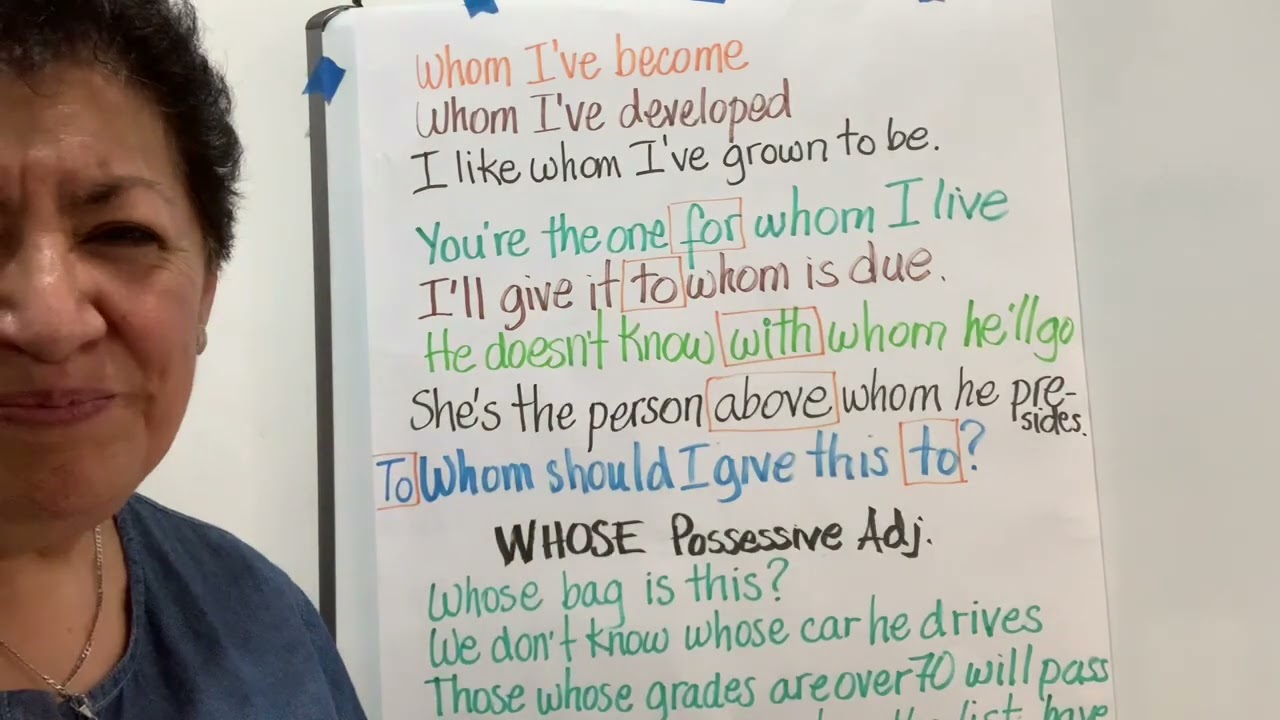 Whom I've become
Whom I've developed
I like whom I've grown to be.
You're the one for whom I live
I'll give it to whom is due.
He doesn't know with whom he'll go
She's the person above whom he pre-
sides.
To Whom should I give this to?
WHOSE Possessive Adj.
Whose bag is this?
We don't know whose car he drives
Those whose grades are over 70 will pass
the list have